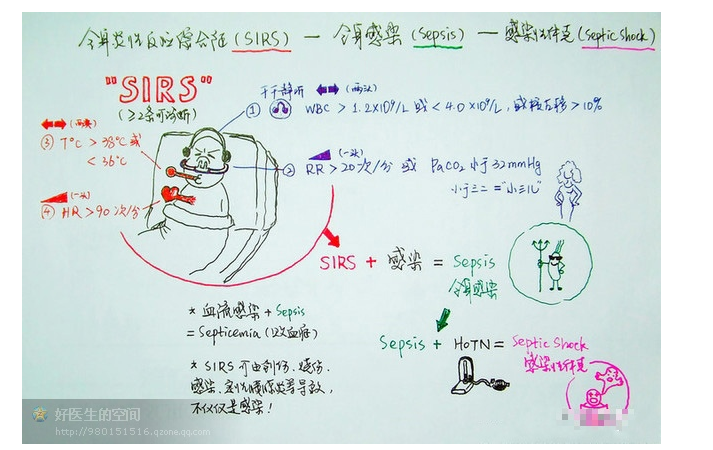 全身炎性反应综合征(SIRS) — 全身感染(Sepsis) — 感染性休克(Septic Shock)
"SIRS"
(≥2条可诊断)
干干静听 (两头)
① WBC > 1.2×10⁹/L 或 < 4.0×10⁹/L, 或核左移 > 10%
(两头)
③ T°C > 38°C 或
< 36°C
(一头)
② RR > 20次/分 或 PaCO₂ 小于 32mmHg
小于三二 = "小三儿"
(一头)
④ HR > 90次/分
SIRS + 感染 = Sepsis
全身感染
* 血流感染 + Sepsis
= Septicemia (败血症)
Sepsis + HoTN = Septic Shock
感染性休克
* SIRS 可由创伤、烧伤、
感染、急性胰腺炎等导致,
不仅仅是感染!
好医生的空间
http://980151516.qzone.qq.com